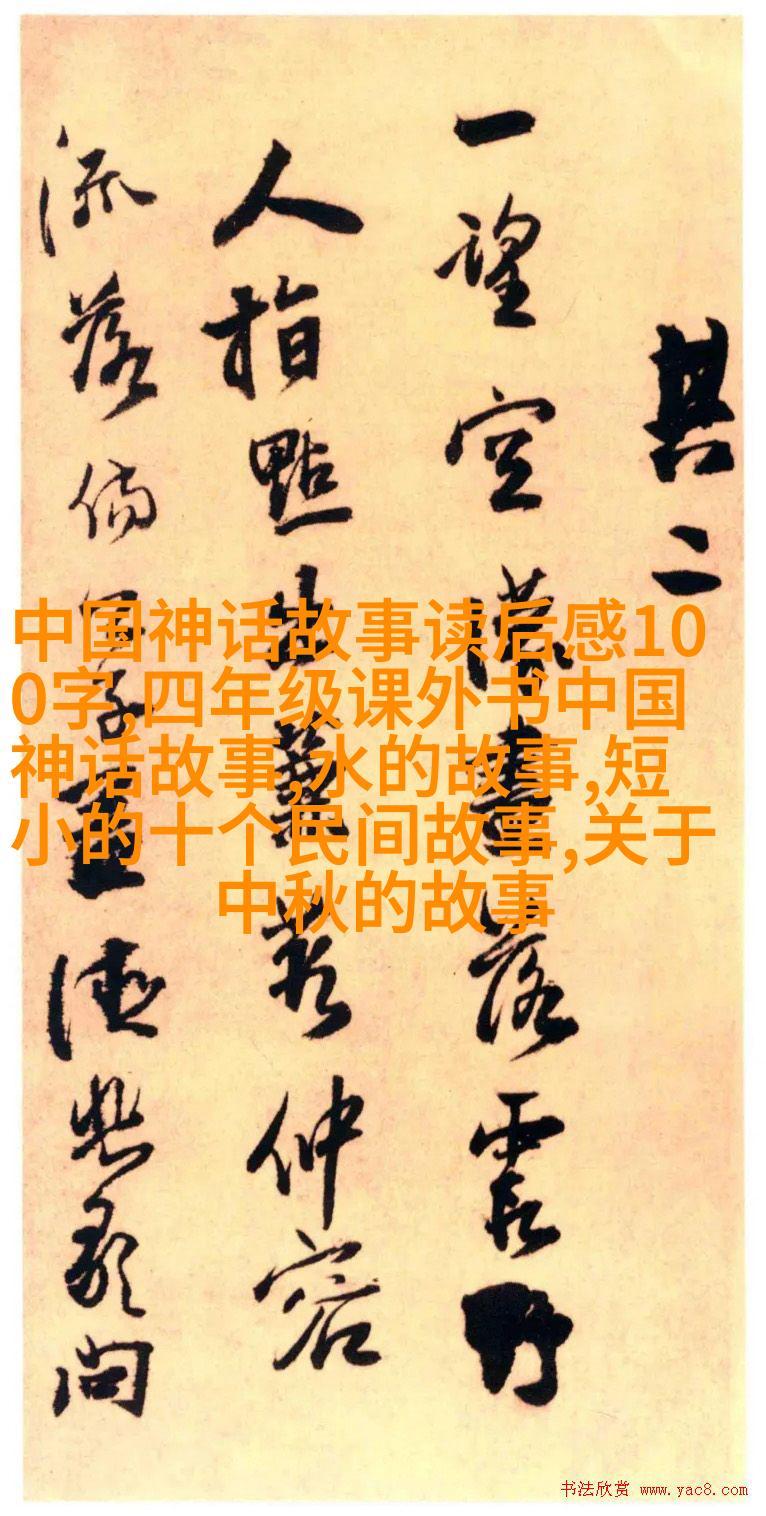 其二
一望空濛落霞野
人指點仲容
流落
中国神话故事读后感10
0字,四年级课外书中国
神话故事,水的故事,短
小的十个民间故事,关于
中秋的故事
书法欣赏 www.yac8.com